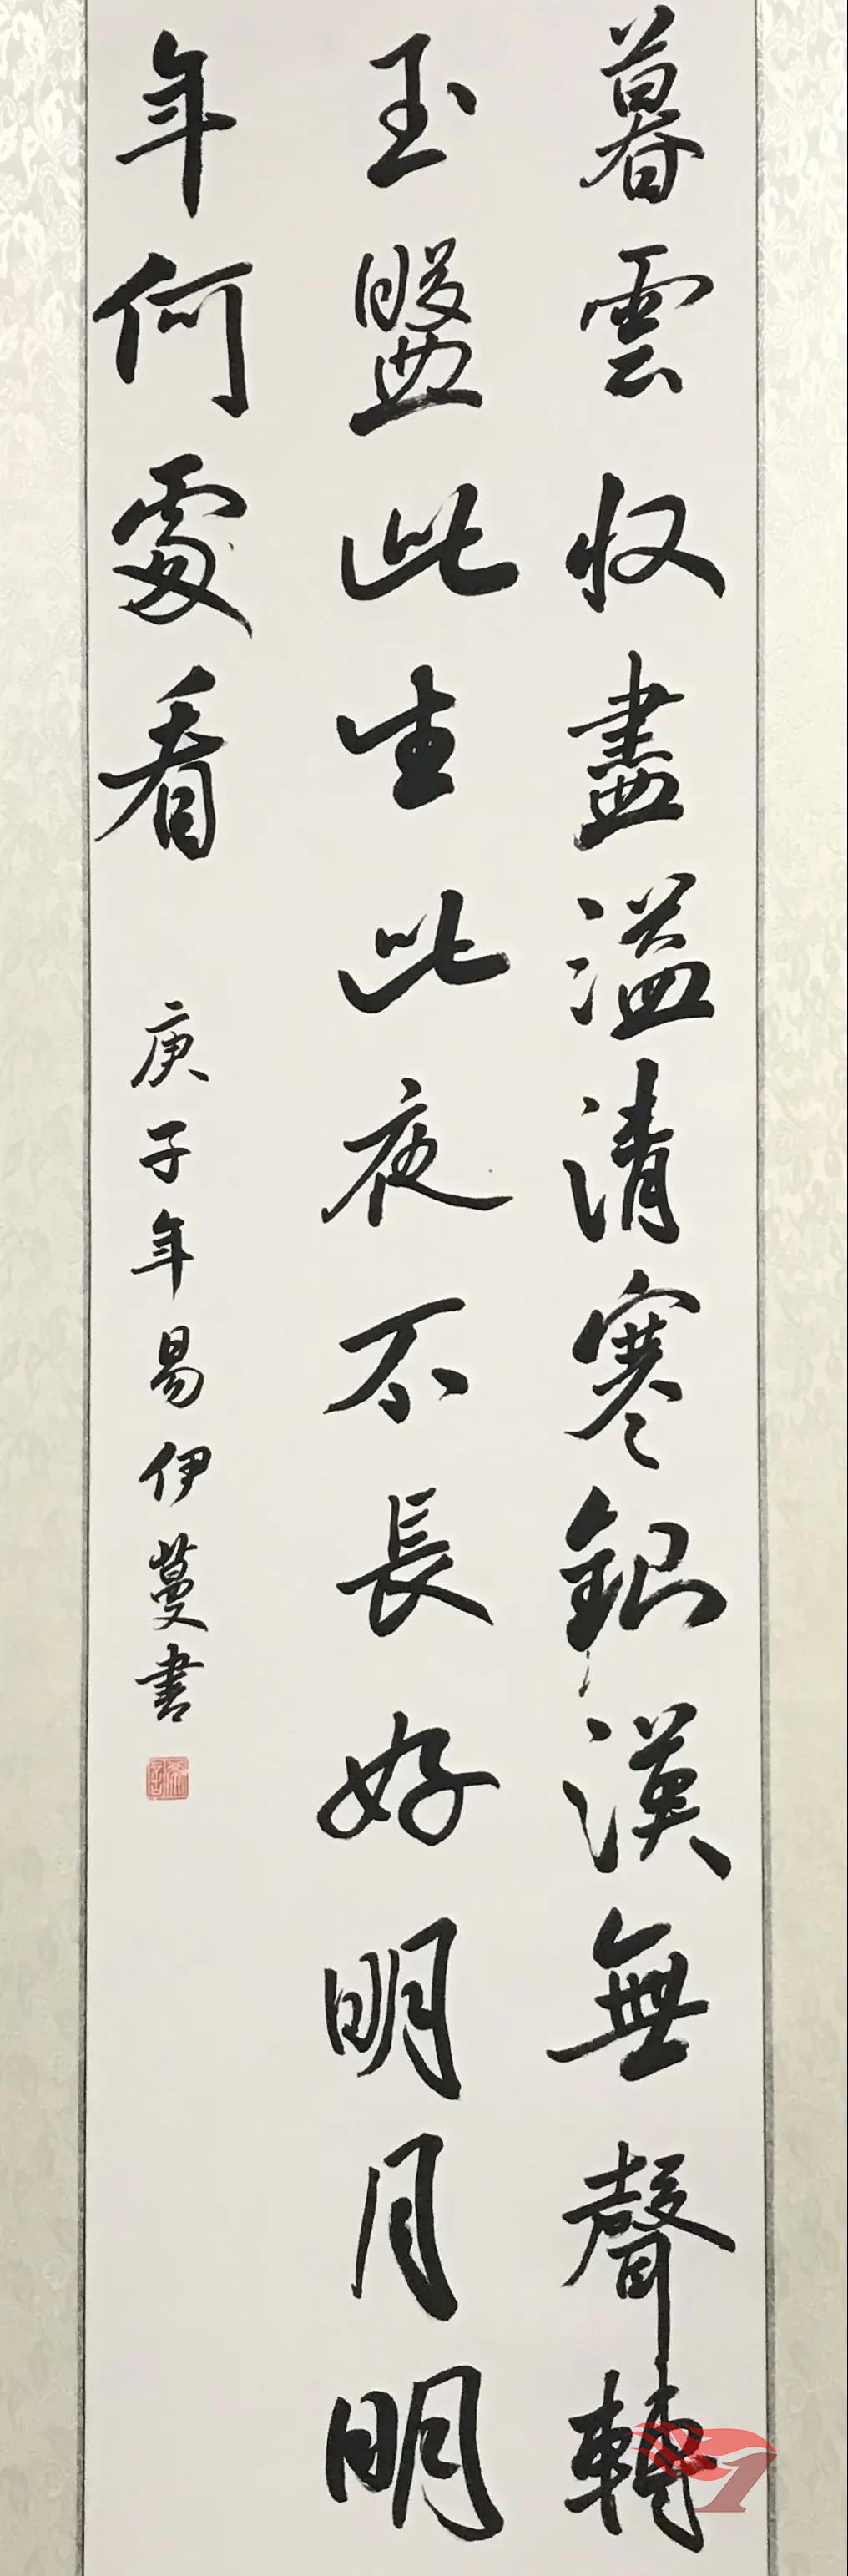 暮雲收盡溢清寒銀漢無聲轉
玉盤此生此夜不長好明月明
年何處看
庚子年易伊蔓書